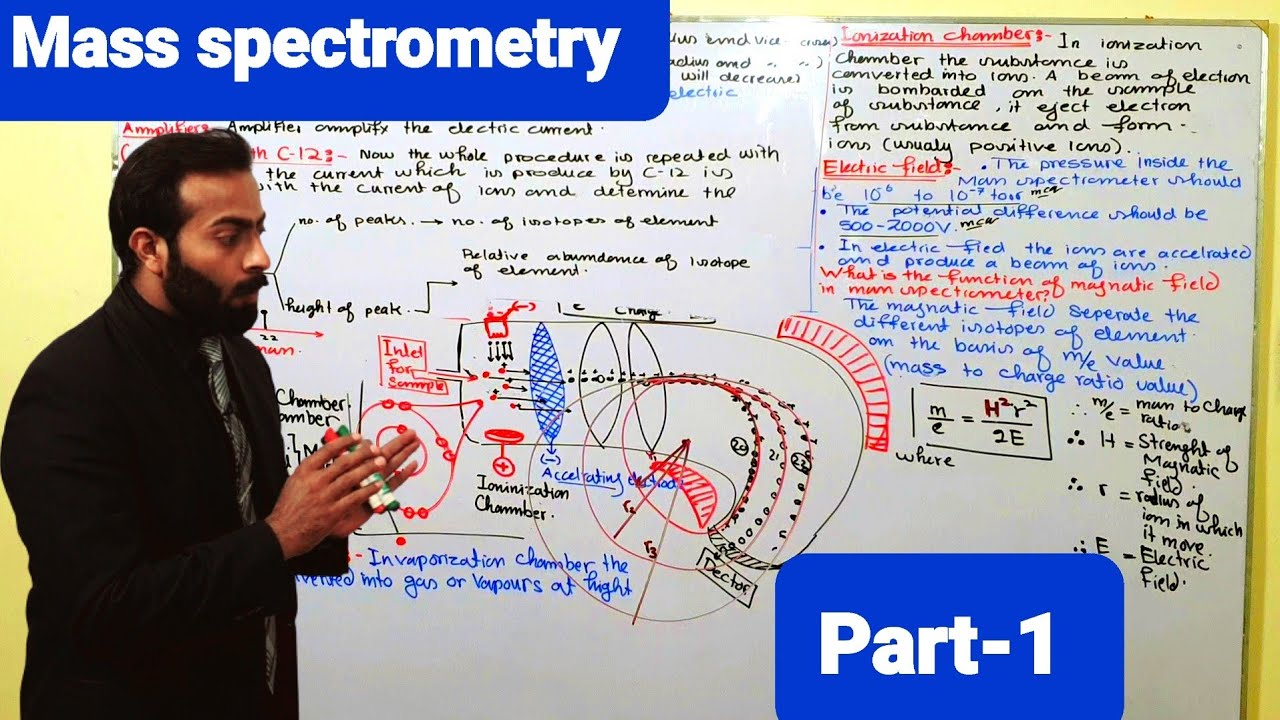 Mass spectrometry
and vice
radius and " " )
will decrease)
electric
Amplifier:- Amplifier amplify the electric current.
th C-12:- Now the whole procedure is repeated with
the current which is produce by C-12 is
with the current of ions and determine the
no. of peaks. → no. of isotopes of element
Relative abundance of isotope
of element.
height of peak.
22
man.
Inlet
for
sample
Chamber
Ioninization
Chamber.
(-)
Accelrating
r3
22
21
Dector
:- In vaporization chamber the
into gas or vapours at hight
Ionization chamber:- In ionization
chamber the substance is
converted into ions. A beam of electron
is bombarded on the sample
of substance, it eject electron
from substance and form
ions (usualy positive ions).
Electric field:- • The pressure inside the
Mass spectrometer should
be 10⁶ to 10⁻⁷ torr mcq
• The potential difference should be
500-2000V. mcq
• In electric fied the ions are accelrated
and produce a beam of ions.
What is the function of magnatic field
in mass spectrometer?
The magnatic field seperate the
different isotopes of element
on the basis of m/e value
(mass to charge ratio value)
m/e = H²r²/2E
where
∴ m/e = mass to charge
ratio
∴ H = Strenght of
Magnatic
field.
∴ r = radius of
ion in which
it move.
∴ E = Electric
field.
Part-1